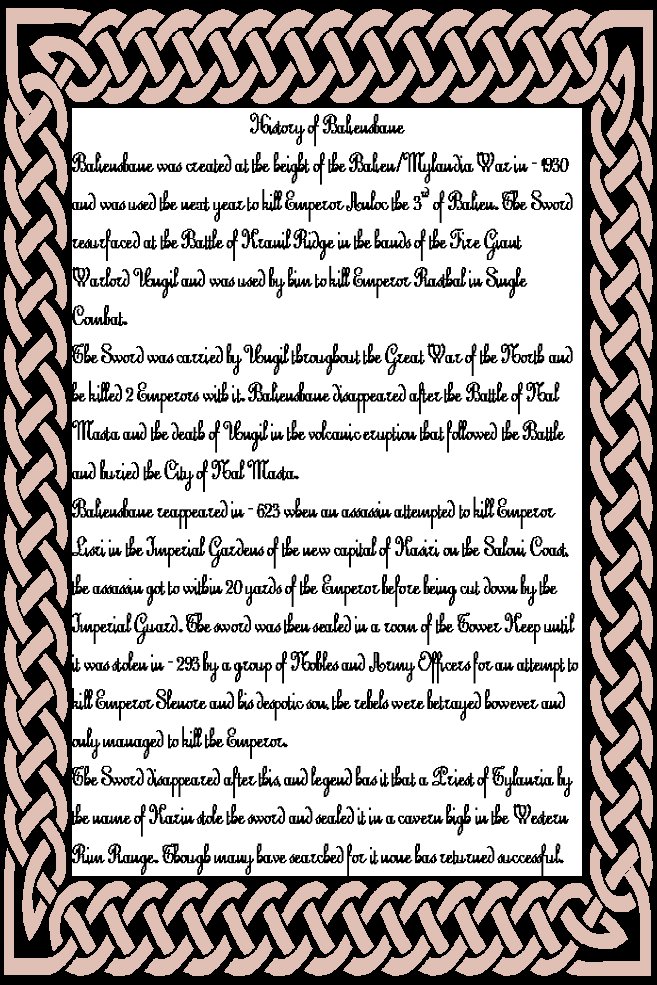 History of Baliensbane
Baliensbane was created at the height of the Balien/Mylandia War in - 1930
and was used the next year to kill Emperor Anloc the 3rd of Balien. The Sword
resurfaced at the Battle of Kranil Ridge in the hands of the Fire Giant
Warlord Vngil and was used by him to kill Emperor Rasthal in Single
Combat.
The Sword was carried by Vngil throughout the Great War of the North and
he killed 2 Emperors with it. Baliensbane disappeared after the Battle of Nal
Masta and the death of Vngil in the volcanic eruption that followed the Battle
and buried the City of Nal Masta.
Baliensbane reappeared in - 623 when an assassin attempted to kill Emperor
in the Imperial Gardens of the new capital of on the Coast,
the assassin got to within 20 yards of the Emperor before being cut down by the
Imperial Guard. The sword was then sealed in a room of the Tower Keep until
it was stolen in - 293 by a group of Nobles and Army Officers for an attempt to
kill Emperor Slenore and his despotic son, the rebels were betrayed however and
only managed to kill the Emperor.
The Sword disappeared after this, and legend has it that a Priest of Tylanria by
the name of Kazin stole the sword and sealed it in a cavern high in the Western
Rim Range. Though many have searched for it none has returned successful.